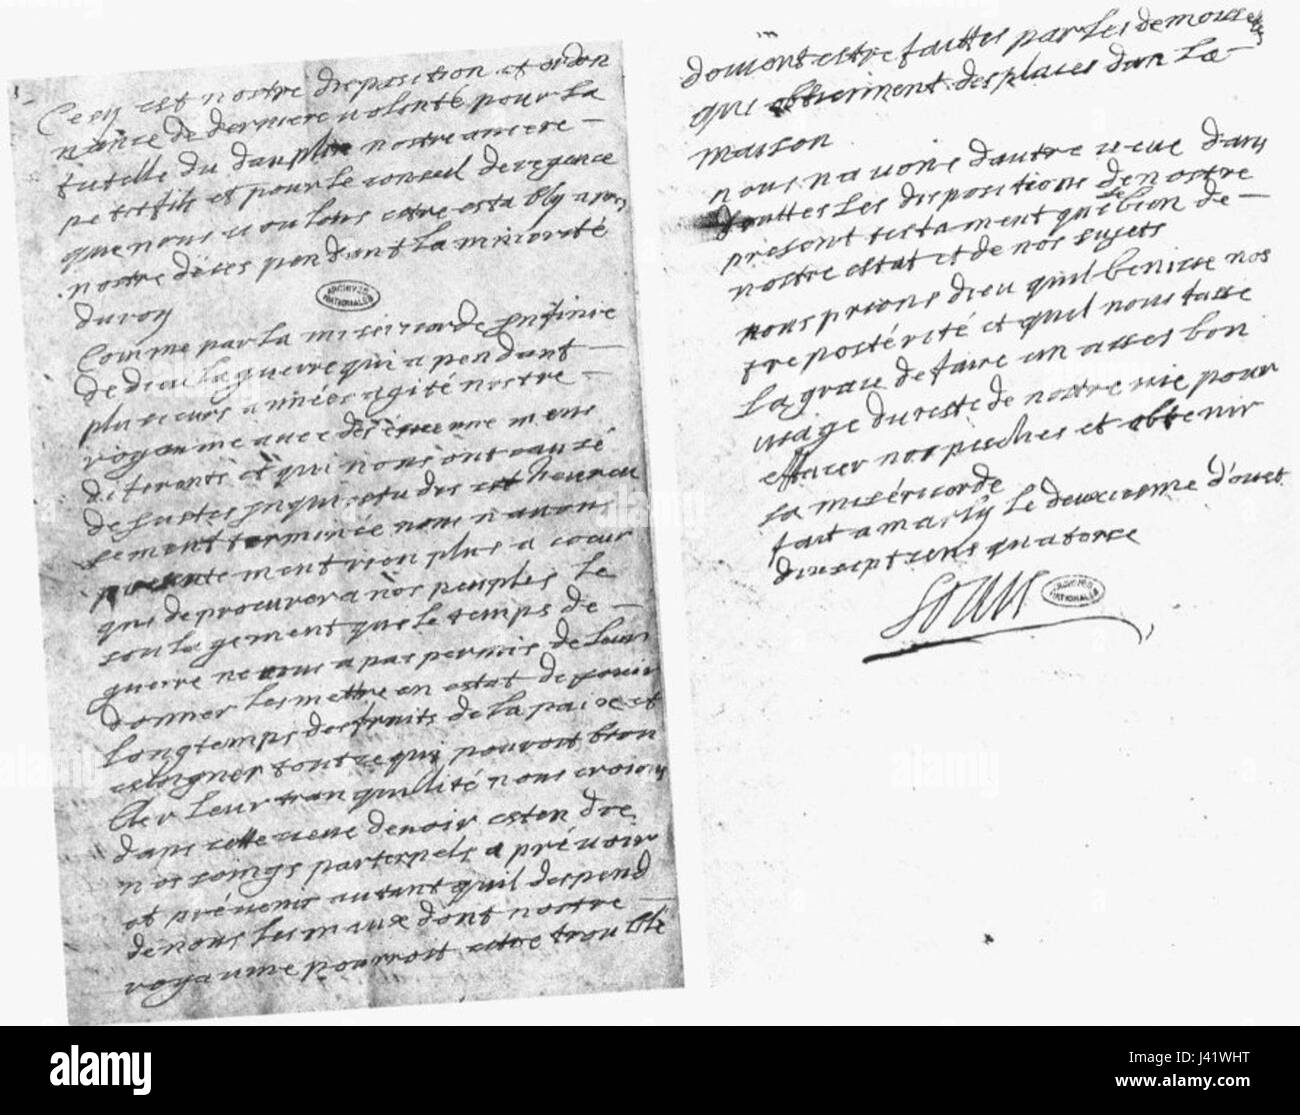 Cecy est nostre disposition et ordon
nance de derniere volonté pour la
tutelle du dauphin nostre arriere
petit fils et pour le conseil de regence
que nous voulons estre estably apres
nostre déces pendant la minorité
du roy
ARCHIVES NATIONALES
Comme par la misericorde Infinie
de dieu la guerre qui a pendant
plusieurs années agité nostre
royaume avec des évenemens
diferants et qui nous ont causé
de Justes Inquiestudes est heureu
sement terminée nous n avons
presentement rien plus a coeur
que de procurer a nos peuples le
soulagement que le temps de
guerre ne nous a pas permis de leur
donner les mettre en estat de jouir
longtemps des fruits de la paix et
esloigner tout ce qui pouroit troub
ler leur tranquilité nous croions
dans cette veue devoir estendre
nos soings paternels a prévoir
et prévenir autant quil despend
de nous les maux dont nostre
royaume pourroit estre troublé
doivent estre faittes par les demoiselles
qui obtiennent des places dans la
maison
nous n avons d autre veue dans
touttes les dispositions de nostre
présent testament que le bien de
nostre estat et de nos sujets
nous prions dieu quil benisse nos
tre postérité et quil nous fasse
la grace de faire un asses bon
usage du reste de nostre vie pour
effacer nos peches et obtenir
sa miséricorde
fait a marly le deuxiesme d'oust
dix sept cens quatorze
Louis
ARCHIVES NATIONALES
alamy
alamy
alamy
alamy
alamy
alamy
www.alamy.com
J41WHT